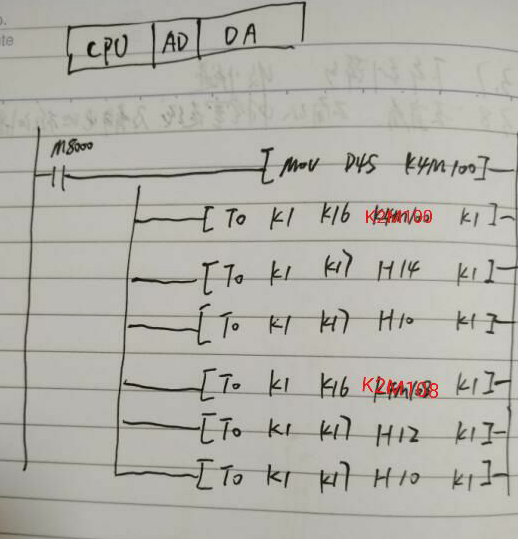 CPU AD DA
M8000
[ MOV D45 K4M100 ]
[ To K1 K16 K2M100 K1 ]
[ To K1 K17 H14 K1 ]
[ To K1 K17 H10 K1 ]
[ To K1 K16 K2M108 K1 ]
[ To K1 K17 H12 K1 ]
[ To K1 K17 H10 K1 ]